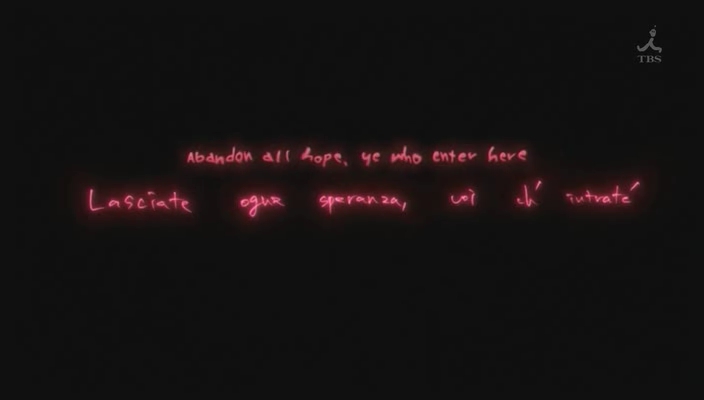 TBS
Abandon all hope, ye who enter here
Lasciate ogne speranza, voi ch' intrate'